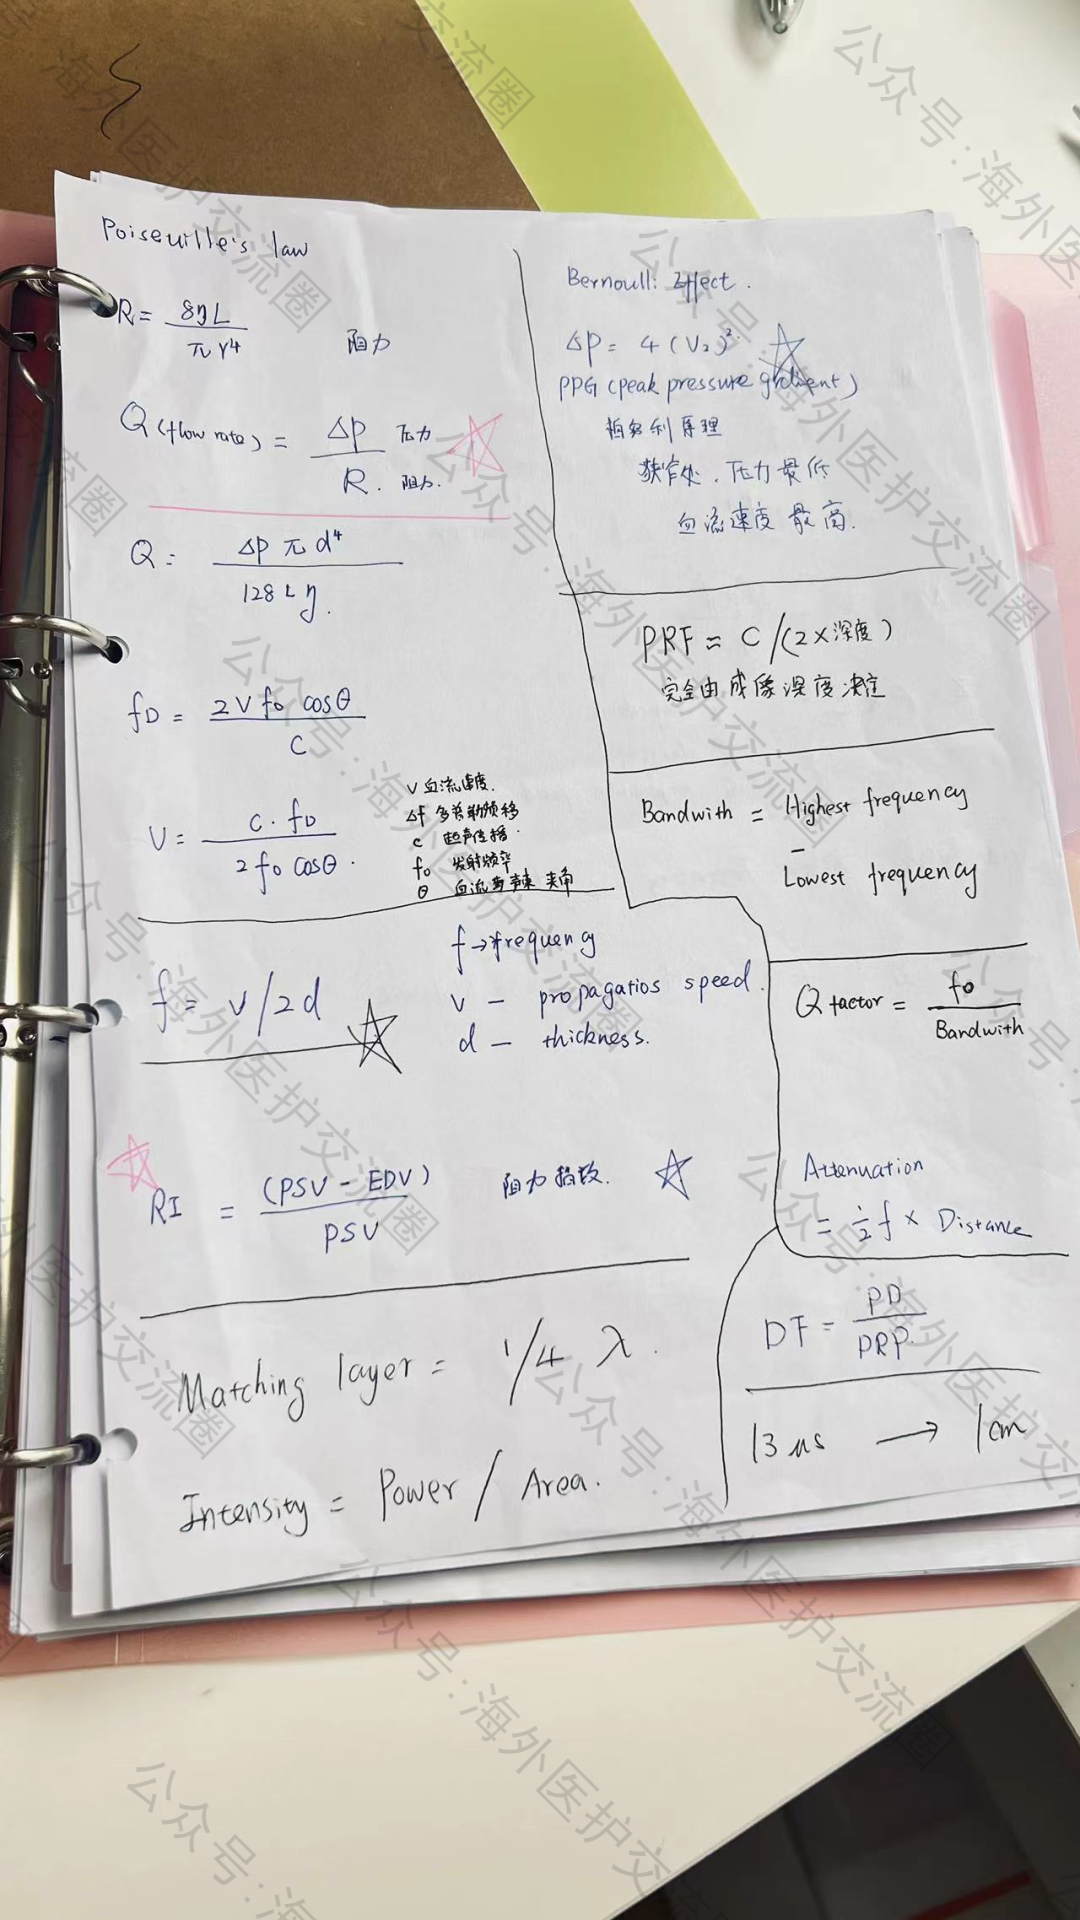 Poiseuille's law
R = 8ηL / πr⁴ 阻力
Q (flow rate) = ΔP 压力 / R. 阻力.
Q = ΔP π d⁴ / 128 L η.
fD = 2 V fo cosθ / C
V = C · fD / 2 fo cosθ.
V 血流速度.
Δf 多普勒频移
c 超声传播.
fo 发射频率
θ 血流与声束 夹角
f = v/2d
f → frequency
v — propagatios speed.
d — thickness.
RI = (PSV - EDV) / PSV 阻力指数.
Matching layer = 1/4 λ.
Intensity = Power / Area.
Bernoulli Effect.
ΔP = 4 (V₂)²
PPG (peak pressure grdient)
利原理
狭窄处, 压力最低
血流速度 最高.
PRF = C /(2×深度)
完全由成像深度决定
Bandwith = Highest frequency
–
Lowest frequency
Q factor = fo / Bandwith
Attenuation
= ½ f × Distance
DF = PD / PRP.
13 us → 1cm
公众号:海外医护交流圈